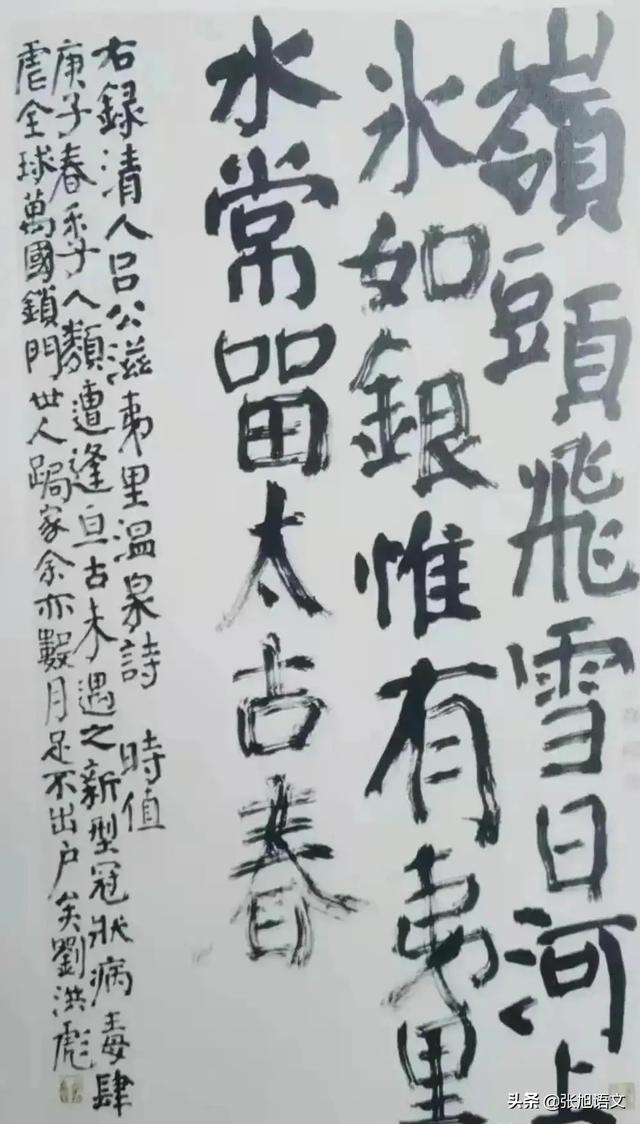 嶺頭飛雪日河上
氷如銀惟有夷里
水常留太古春
右録清人吕公滋夷里温泉詩 時值
庚子春季人類遭逢亘古未遇之新型冠狀病毒肆
虐全球萬國鎖門世人跼家余亦數月足不出户矣劉洪彪
头条 @张旭语文